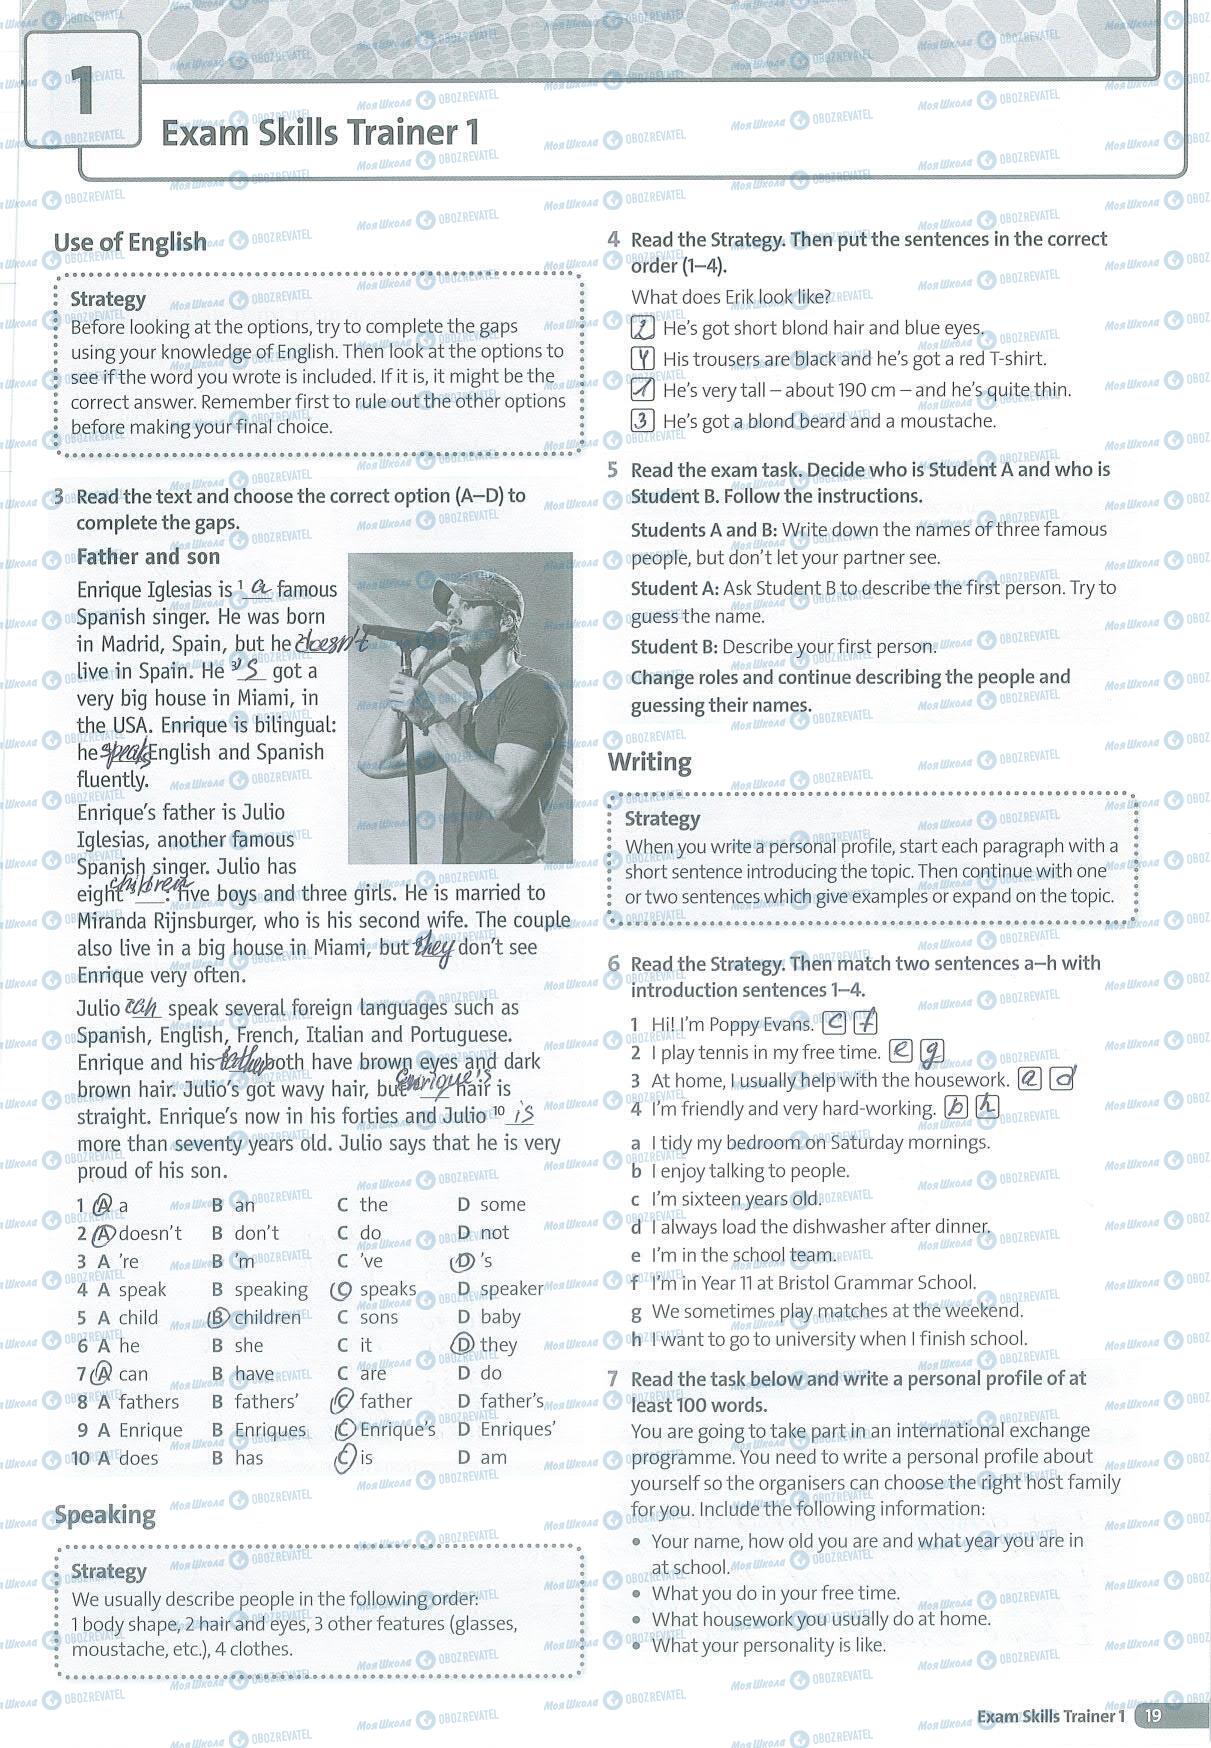 1
Exam Skills Trainer 1
Use of English
Strategy
Before looking at the options, try to complete the gaps
using your knowledge of English. Then look at the options to
see if the word you wrote is included. If it is, it might be the
correct answer. Remember first to rule out the other options
before making your final choice.
3 Read the text and choose the correct option (A–D) to
complete the gaps.
Father and son
Enrique Iglesias is 1 a famous
Spanish singer. He was born
in Madrid, Spain, but he 2 doesn't
live in Spain. He 3 's got a
very big house in Miami, in
the USA. Enrique is bilingual:
he speaks English and Spanish
fluently.
Enrique's father is Julio
Iglesias, another famous
Spanish singer. Julio has
eight 5 children: five boys and three girls. He is married to
Miranda Rijnsburger, who is his second wife. The couple
also live in a big house in Miami, but they don't see
Enrique very often.
Julio can speak several foreign languages such as
Spanish, English, French, Italian and Portuguese.
Enrique and his father both have brown eyes and dark
brown hair. Julio's got wavy hair, but Enrique's hair is
straight. Enrique's now in his forties and Julio 10 is
more than seventy years old. Julio says that he is very
proud of his son.
1 A a B an C the D some
2 A doesn't B don't C do D not
3 A 're B 'm C 've D 's
4 A speak B speaking C speaks D speaker
5 A child B children C sons D baby
6 A he B she C it D they
7 A can B have C are D do
8 A fathers B fathers' C father D father's
9 A Enrique B Enriques C Enrique's D Enriques'
10 A does B has C is D am
Speaking
Strategy
We usually describe people in the following order:
1 body shape, 2 hair and eyes, 3 other features (glasses,
moustache, etc.), 4 clothes.
4 Read the Strategy. Then put the sentences in the correct
order (1–4).
What does Erik look like?
2 He's got short blond hair and blue eyes.
4 His trousers are black and he's got a red T-shirt.
1 He's very tall – about 190 cm – and he's quite thin.
3 He's got a blond beard and a moustache.
5 Read the exam task. Decide who is Student A and who is
Student B. Follow the instructions.
Students A and B: Write down the names of three famous
people, but don't let your partner see.
Student A: Ask Student B to describe the first person. Try to
guess the name.
Student B: Describe your first person.
Change roles and continue describing the people and
guessing their names.
Writing
Strategy
When you write a personal profile, start each paragraph with a
short sentence introducing the topic. Then continue with one
or two sentences which give examples or expand on the topic.
6 Read the Strategy. Then match two sentences a–h with
introduction sentences 1–4.
1 Hi! I'm Poppy Evans. c f
2 I play tennis in my free time. e g
3 At home, I usually help with the housework. a d
4 I'm friendly and very hard-working. b h
a I tidy my bedroom on Saturday mornings.
b I enjoy talking to people.
c I'm sixteen years old.
d I always load the dishwasher after dinner.
e I'm in the school team.
f I'm in Year 11 at Bristol Grammar School.
g We sometimes play matches at the weekend.
h I want to go to university when I finish school.
7 Read the task below and write a personal profile of at
least 100 words.
You are going to take part in an international exchange
programme. You need to write a personal profile about
yourself so the organisers can choose the right host family
for you. Include the following information:
• Your name, how old you are and what year you are in
at school.
• What you do in your free time.
• What housework you usually do at home.
• What your personality is like.
Exam Skills Trainer 1 19
Моя Школа OBOZREVATEL